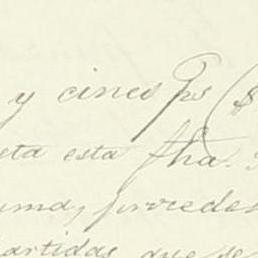 y cinco Ps ($
esta fha.
uma, procedes
artidas que se